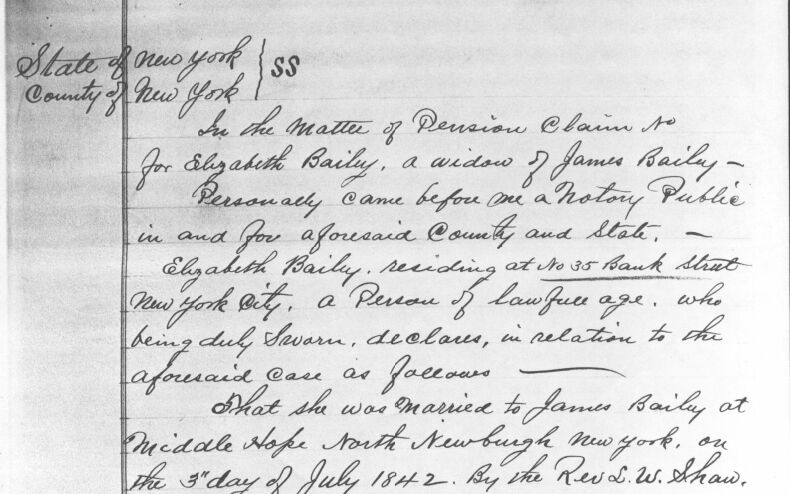 State of New York } SS
County of New York
In the Matter of Pension Claim No
for Elizabeth Baily, a widow of James Baily —
Personally came before me a Notory Public
in and for aforesaid County and State. —
Elizabeth Baily. residing at No 35 Bank Street
New York City. a Person of lawfull age. who
being duly Sworn. declares, in relation to the
aforesaid Case as follows —
That she was Married to James Baily at
Middle Hope North Newburgh New York. on
the 3" day of July 1842. By the Rev L. W. Shaw.